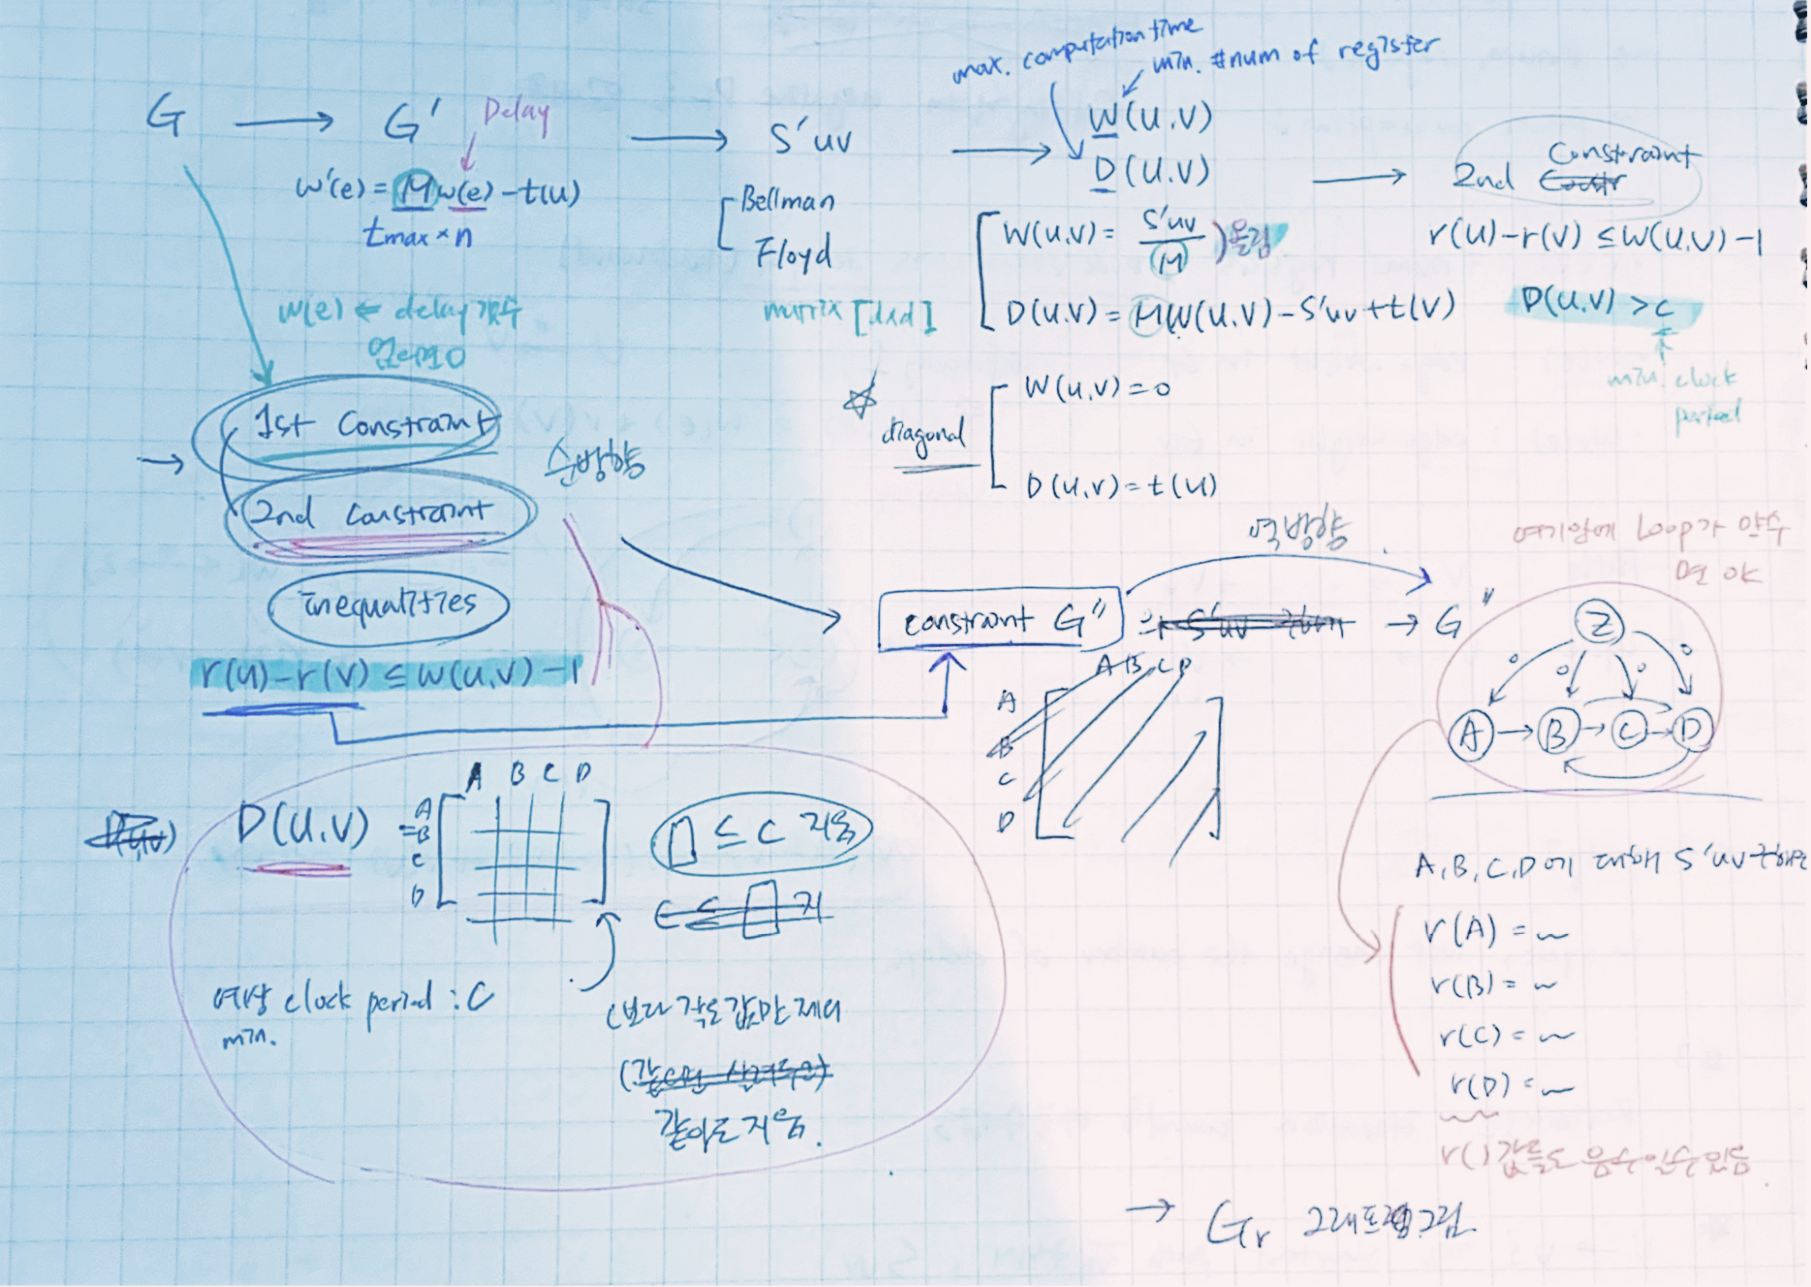 max. computation time
min. #num of register
G → G' → S'uv → W(u,v)
Delay
D(u,v)
→ 2nd Constraint
w'(e) = Mw(e) - t(u)
tmax × n
Bellman
Floyd
matrix
W(u,v) = S'uv / M 올림
D(u,v) = MW(u,v) - S'uv + t(v)
r(u) - r(v) ≤ W(u,v) - 1
D(u,v) > c
min. clock
period
w(e) ← delay 갯수
없으면 0
☆ diagonal
W(u,v) = 0
D(u,v) = t(u)
→ 1st Constraint
2nd Constraint
inequalities
r(u) - r(v) ≤ w(u,v) - 1
순방향
역방향
constraint G"
→ G"
Loop가
Z
0 0 0 0
A → B → C → D
A B C D
A
B
C
D
D(u,v) =
A B C D
A
B
C
D
≤ C 지움
예상 clock period : C
min.
C보다 작은 값만 제외
같아도 지움.
A, B, C, D에 대해 S'uv 구해
r(A) = ~
r(B) = ~
r(C) = ~
r(D) = ~
r( ) 값들도 음수일수있음
→ Gr